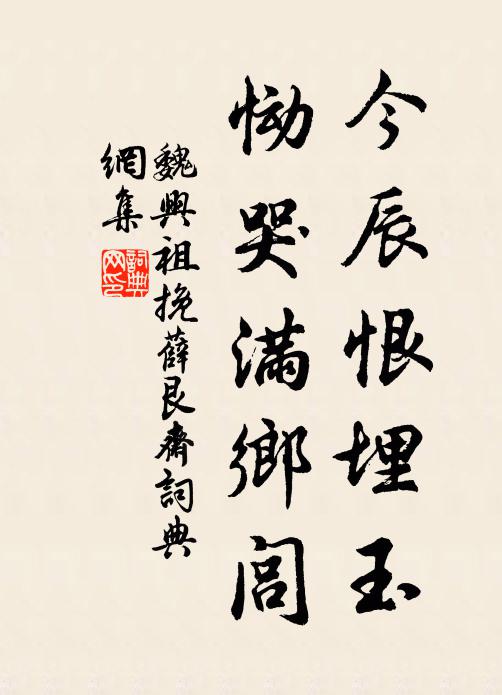 今辰恨埋玉
恸哭满鄉闾
魏興祖挽薛艮齋詞典
網集
詞典
网印